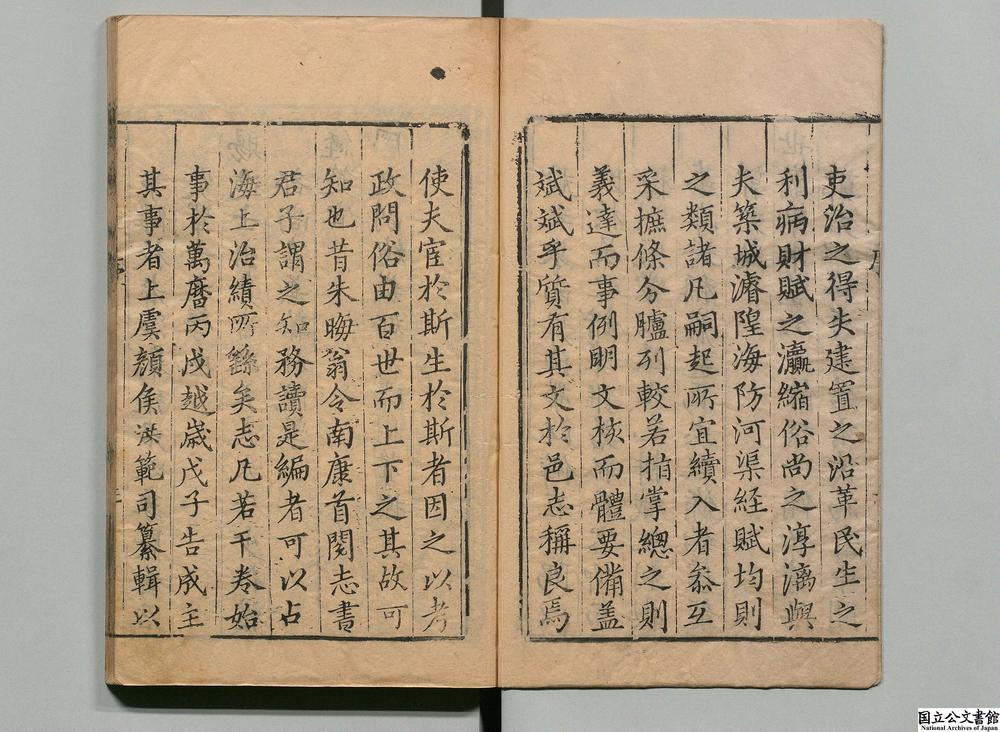 吏治之得失建置之沿革民生之
利病財賦之瀛縮俗尚之淳漓與
夫築城濬隍海防河渠経賦均則
之類諸凡嗣起所宜續入者叅互
采摭條分臚列較若指掌總之則
義達而事例明文核而體要備盖
斌斌乎質有其文於邑志稱良焉
使夫宦於斯生於斯者因之以考
政問俗由百世而上下之其故可
知也昔朱晦翁令南康首閱志書
君子謂之知務讀是編者可以占
海上治績所繇矣志凡若干卷始
事於萬曆丙戌越歲戊子告成主
其事者上虞顔侯洪範司纂輯以
国立公文書館
National Archives of Japan